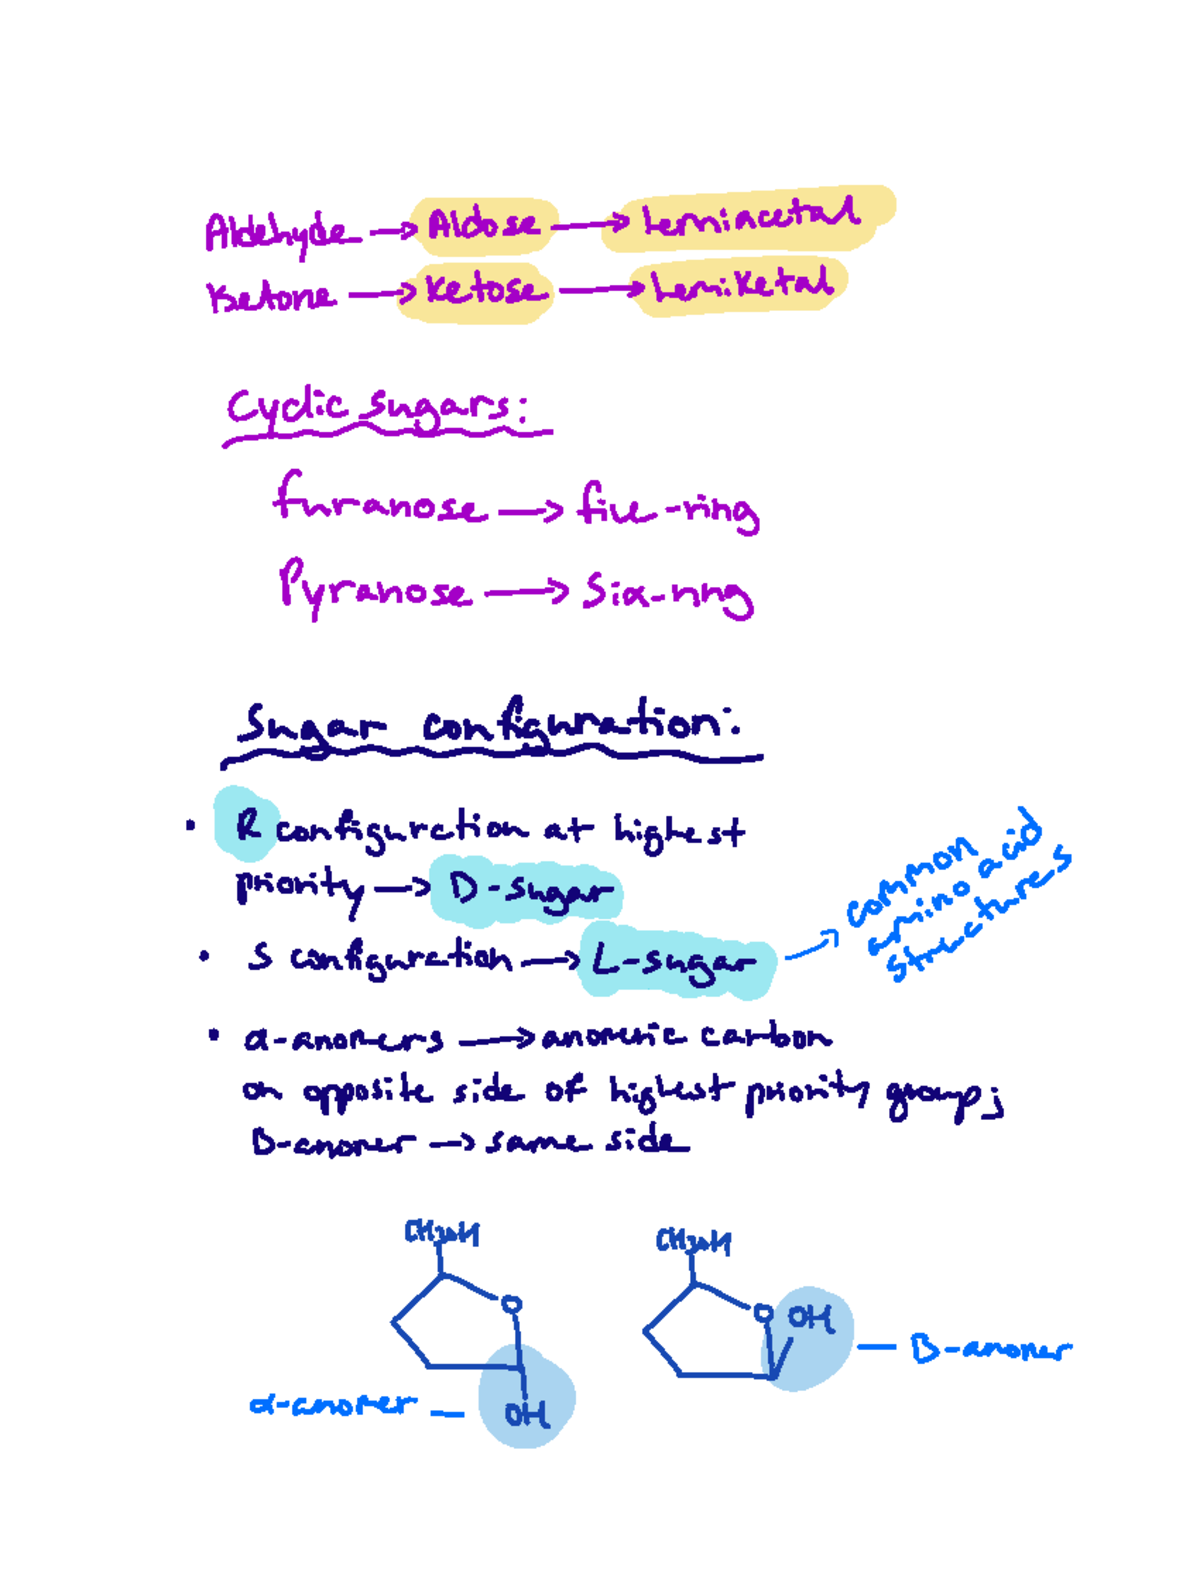 Aldehyde → Aldose → hemiacetal
Ketone → Ketose → hemiketal
Cyclic sugars:
furanose → five-ring
Pyranose → six-ring
Sugar configuration:
• R configuration at highest
priority → D-sugar
• S configuration → L-sugar → common amino acid structures
• α-anomers → anomeric carbon
on opposite side of highest priority group;
B-anomer → same side
CH2OH CH2OH
O O OH
— B-anomer
α-anomer — OH